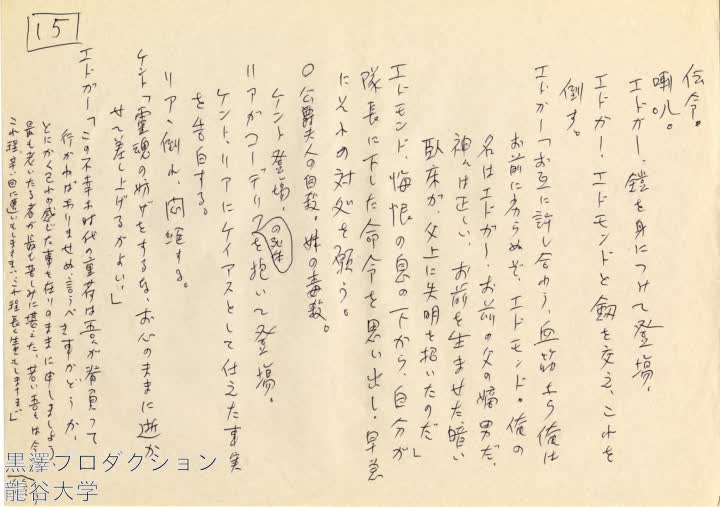 15
伝令。
喇叭。
エドガー、鎧を身につけて登場。
エドガー、エドモンドと劔を交え、これを
倒す。
エドガー「お互に許し合おう、血筋から俺は
お前に劣らぬぞ、エドモンド。俺の
名はエドガー、お前の父の嫡男だ、
神々は正しい、お前を生ませた暗い
臥床が、父上に失明を招いたのだ」
エドモンド、悔恨の息の下から、自分が
隊長に下した命令を思い出し、早急
にそれの対処を願う。
○公爵夫人の自殺。妹の毒殺。
ケント登場。
リアがコーデリアの死体を抱いて登場。
ケント、リアにケイアスとして仕えた事実
を告白する。
リア、倒れ、悶絶する。
ケント「霊魂の妨げをするな、お心のままに逝か
せて差し上げるがよい。」
エドガー「この不幸な時代の重荷は吾々が背負って
行かねばありませぬ、言うべき事かどうか、
とにかくこの感じた事を在りのままに申しましょう、
最も老いたる者が最も苦しみに堪えた、若い吾々は今後
これ程辛い目に遭いもしますまい、これ程長く生きもしますまい」
黒澤プロダクション
龍谷大学